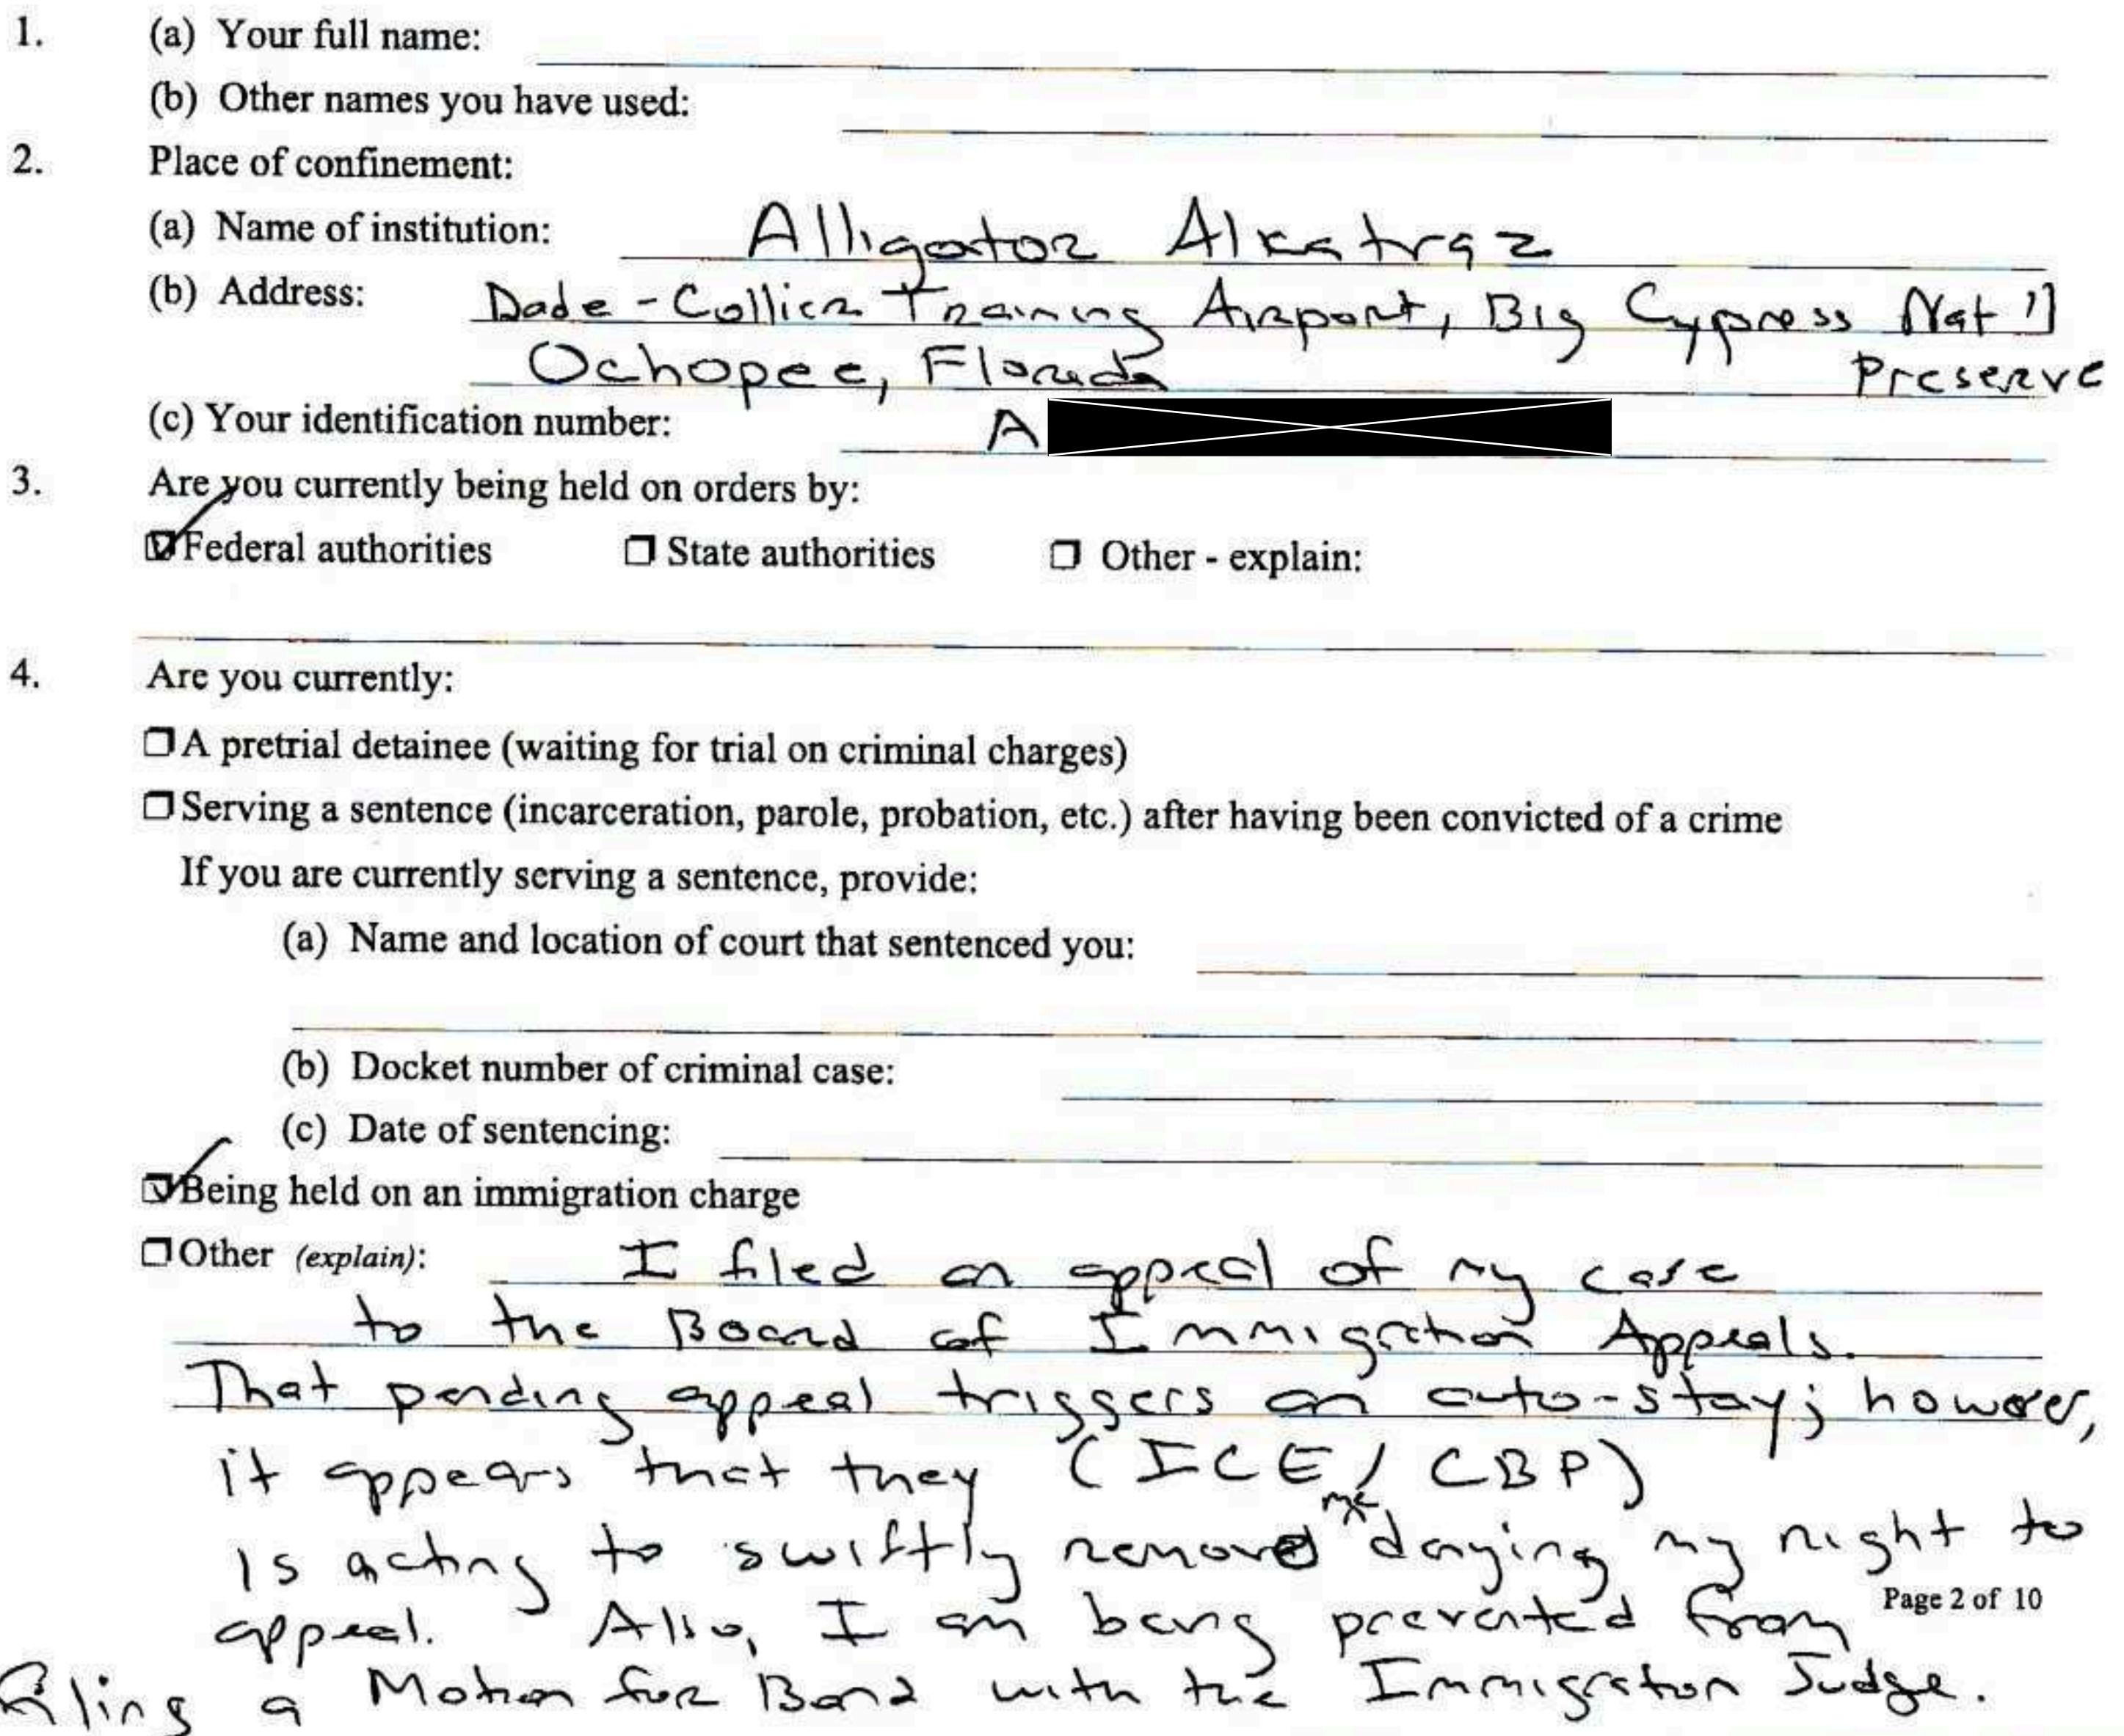 1. (a) Your full name:
(b) Other names you have used:
2. Place of confinement:
(a) Name of institution: Alligator Alkatraz
(b) Address: Dade-Collier Training Airport, Big Cypress Nat'l
Ochopee, Florida Preserve
(c) Your identification number: A
3. Are you currently being held on orders by:
Federal authorities State authorities Other - explain:
4. Are you currently:
A pretrial detainee (waiting for trial on criminal charges)
Serving a sentence (incarceration, parole, probation, etc.) after having been convicted of a crime
If you are currently serving a sentence, provide:
(a) Name and location of court that sentenced you:
(b) Docket number of criminal case:
(c) Date of sentencing:
Being held on an immigration charge
Other (explain): I filed an appeal of my case
to the Board of Immigration Appeals.
That pending appeal triggers an auto-stay; however,
it appears that they (ICE/CBP)
is acting to swiftly remove me denying my right to
appeal. Also, I am being prevented from
Page 2 of 10
filing a Motion for Bond with the Immigration Judge.